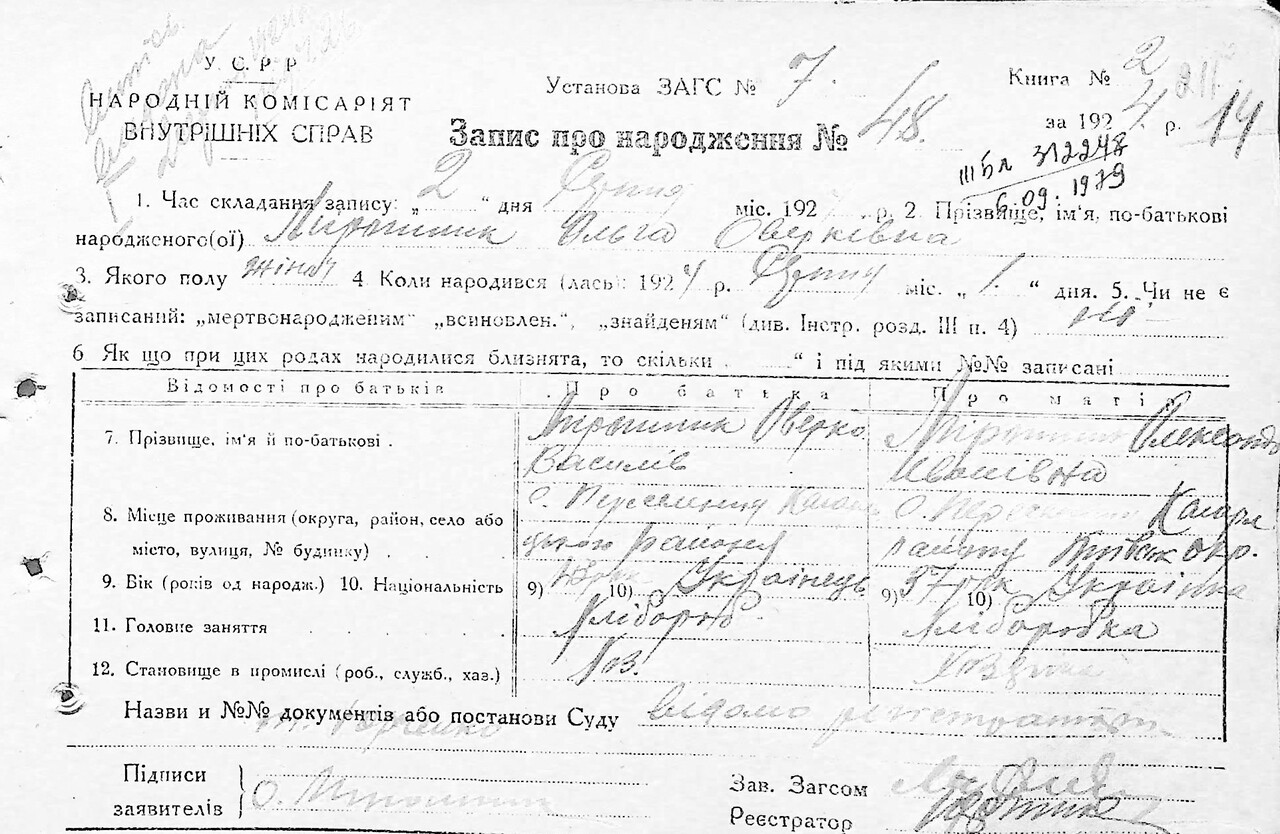 У. С. Р. Р
НАРОДНІЙ КОМІСАРІЯТ
ВНУТРІШНІХ СПРАВ
Установа ЗАГС № 7.
Книга № 2
Запис про народження № 48.
за 1924 р. 14
ІІІ БЛ 312248
6.09.1979
1. Час складання запису: „2“ дня Серпня міс. 192 р. 2. Прізвище, ім'я, по-батькові
народженого(ої) Мирошник Ольга Оверківна
3. Якого полу жіноч 4 Коли народився (лась): 1924 р. Серпня міс. „1“ дня. 5. Чи не є
записаний: „мертвонародженим“ „всиновлен.“, „знайденям“ (див. Інстр. розд. III п. 4) ні
6 Як що при цих родах народилися близнята, то скільки “ і під якими №№ записані
Відомості про батьків Про батька Про матір
7. Прізвище, ім'я й по-батькові . Мирошник Оверко Мирошник Олександ
Василів Іванівна
8. Місце проживання (округа, район, село або с. Переселення Кагарл с. Переселення Кагарл
місто, вулиця, № будинку) . . цького Району району Київськ окр.
9. Вік (років од народж.) 10. Національність 9) 10) Українець 9) 37 рок 10) Українка
11. Головне заняття . . . . Хлібороб Хліборобка
12. Становище в промислі (роб., служб., хаз.) Хаз.
Назви и №№ документів або постанови Суду відомо
Підписи
заявителів О. Мирошник
Зав. Загсом
Реєстратор